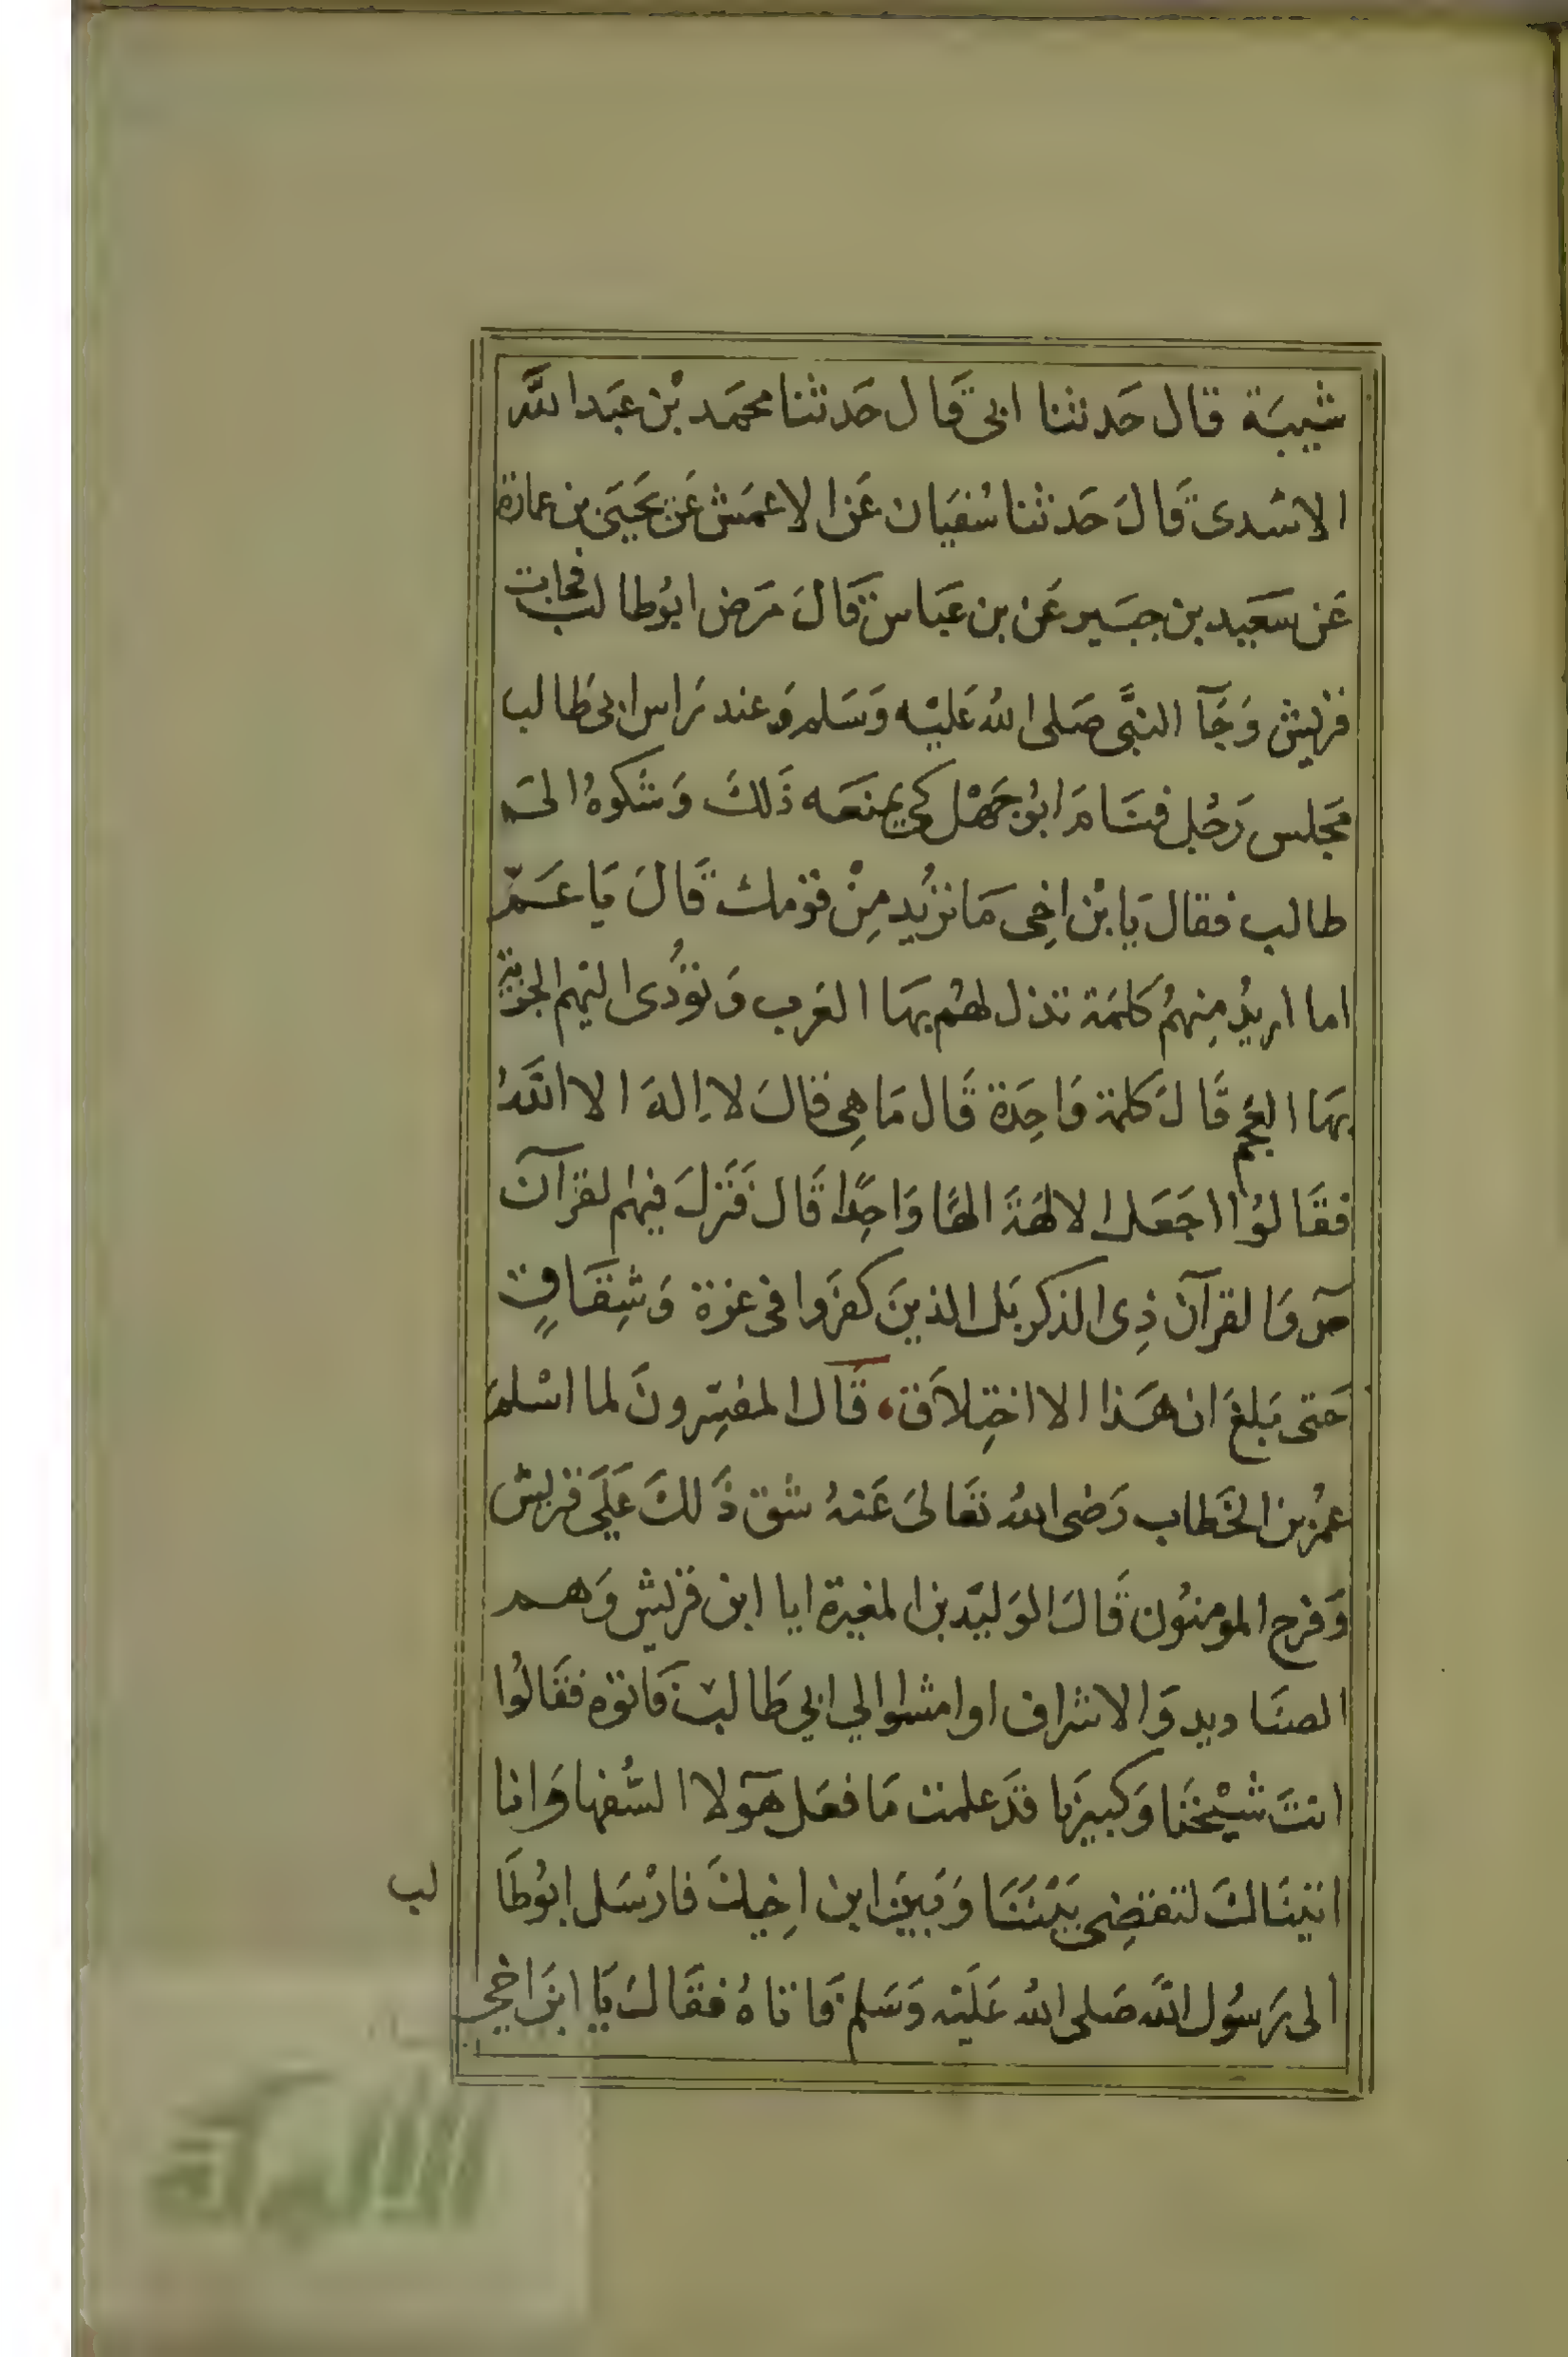 شيبة قال حدثنا ابى قال حدثنا محمد بن عبد الله
الاسدى قال حدثنا سفيان عن الاعمش عن يحيى بن عمارة
عن سعيد بن جبير عن بن عباس قال مرض ابو طالب فجات
قريش وجآ النبى صلى الله عليه وسلم وعند راس ابى طالب
مجلس رجل فقام ابو جهل كى يمنعه ذلك وشكوه الى
طالب فقال يا بن اخى ما تريد من قومك قال يا عم
اما اريد منهم كلمة تذل لهم بها العرب وتؤدى اليهم الجزية
بها العجم قال كلمة واحدة قال ما هى قال لا اله الا الله
فقالوا اجعل الالهة الها واحدا قال فنزل فيهم لقرآن
ص والقرآن ذى الذكر بل الذين كفروا فى عزة وشقاق
حتى بلغ ان هذا الا اختلاق، قال المفسرون لما اسلم
عمر بن الخطاب رضى الله تعالى عنه شق ذلك على قريش
وفرح المومنون قال الوليد بن المغيرة ايا ابن قريش وهم
الصناديد والاشراف اوامشوا الي ابي طالب فاتوه فقالوا
انت شيخنا وكبيرنا قد علمت ما فعل هٓولا السفها وانا
اتيناك لتقضى بيننا وبين ابن اخيك فارسل ابو طا
لب
الى رسول الله صلى الله عليه وسلم فاتاه فقال يا ابن اخي
الألوكة